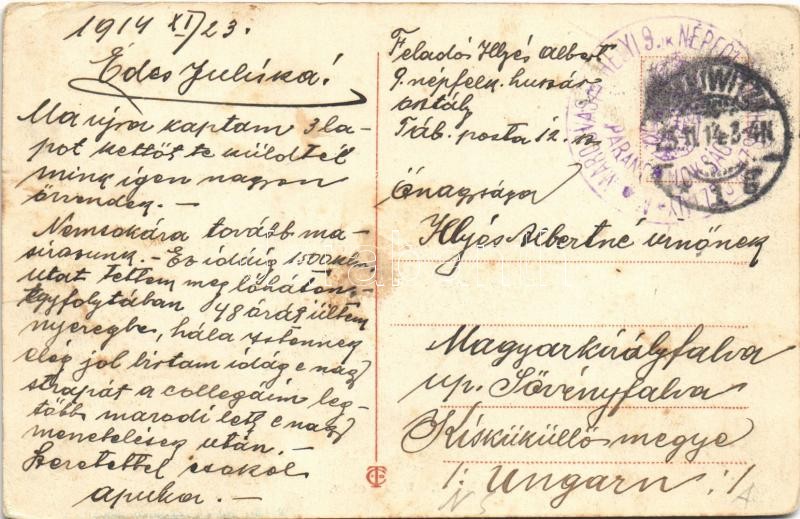 1914 XI/23.
Édes Juliska!
Ma ujra kaptam 3 la-
pot kettőt te küldtél
mink igen nagyon
örvendek. -
Nemsokára tovább ma-
sirozunk. - Ez idáig 1500 klm
utat tettem meg lóháton
egyfolytában 48 órát ültem
nyeregbe, hála Istennek
elég jol birtam idáig e nagy
strapát a collegáim leg-
több maradi lett e nagy
menetelések után. -
Szeretettel csokol
apuka. -
Feladó Illyés Albert
9. népfelk. huszár
osztály
Táb. posta 12.
Őnagysága
Illyés Albertné urnőnek
Magyarkirályfalva
up. Sövényfalva
Kisküküllő megye
/: Ungarn :/
25.11.14.3-4N